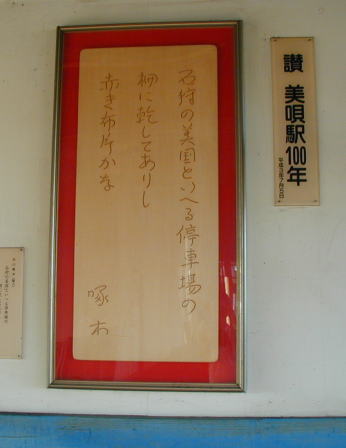 讃 美唄駅100年
平成3年7月5日
石狩の美国といへる停車場の
柵に乾してありし
赤き布片かな
啄木